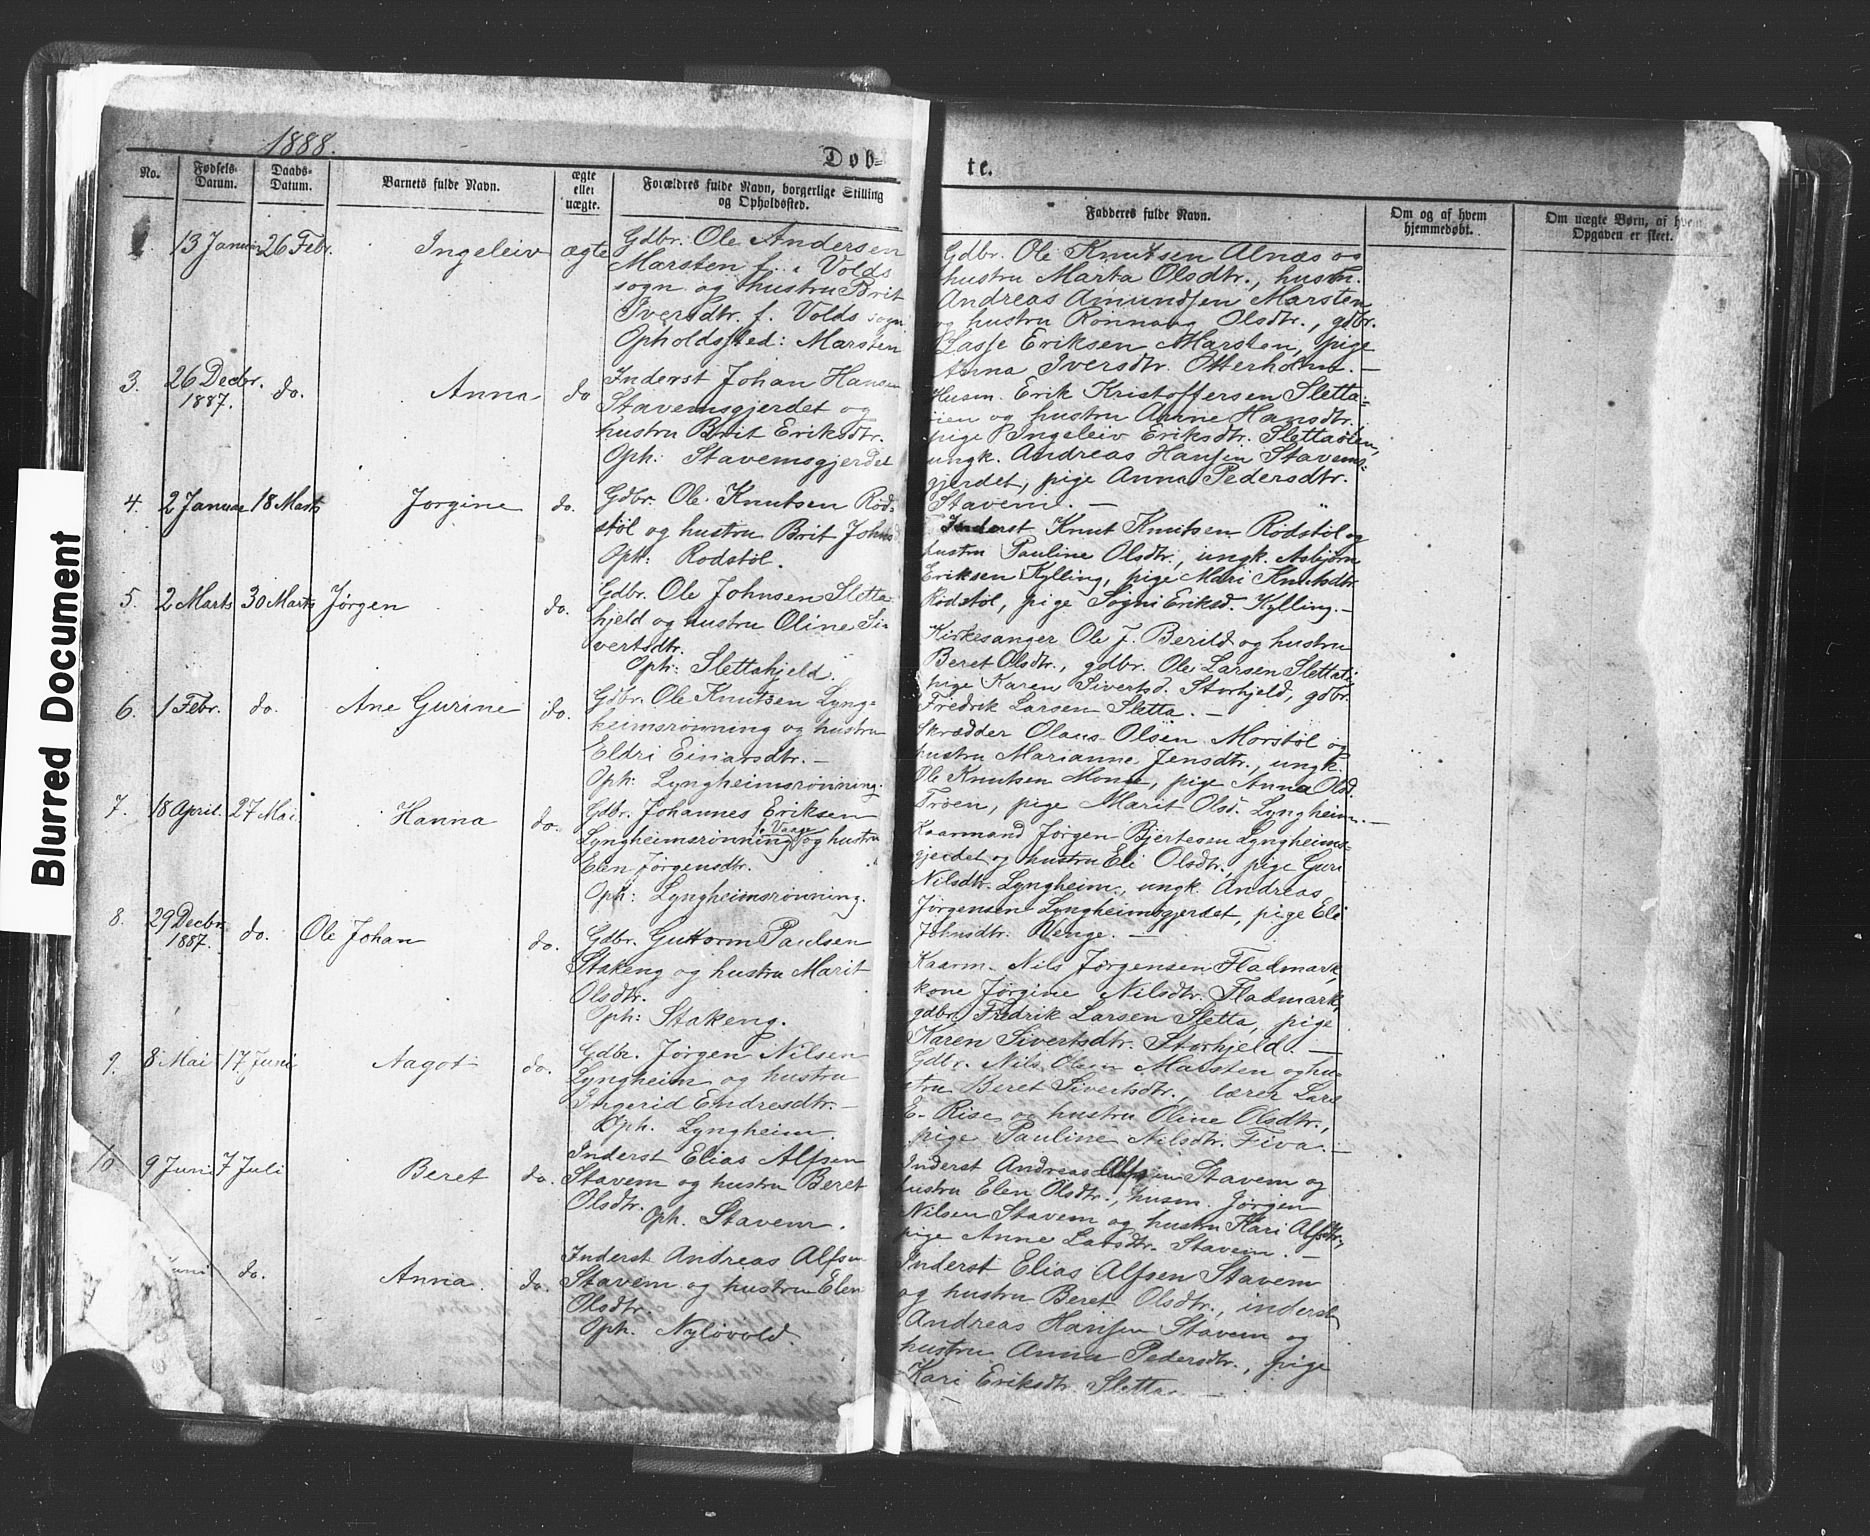 Blurred Document
1888.
Døb-
te.
No.
Fødsels-
Datum.
Daabs-
Datum.
Barnets fulde Navn.
ægte
eller
uægte.
Forældres fulde Navn, borgerlige Stilling
og Opholdssted.
Fadderes fulde Navn.
Om og af hvem
hjemmedøbt.
Om uægte Børn, af hvem
Opgaven er skeet.
13 Januar 26 Febr. Ingeleiv ægte
Gdbr. Ole Andersen
Marsten f. i Volds
sogn og hustru Brit
Iversdtr. f. Volds sogn
Opholdssted: Marsten
Gdbr. Ole Knutsen Alnæs og
hustru Marta Olsdtr., husm.
Andreas Amundsen Marsten
og hustru Rønnaug Olsdtr., gdbr.
Lasse Eriksen Marsten, pige
Anna Iversdtr. Otterholm. —
3. 26 Decbr. 1887. do. Anna do
Inderst Johan Hansen
Stavemsgjerdet og
hustru Brit Eriksdtr.
Oph: Stavemsgjerdet
Husm. Erik Kristoffersen Sletta-
øien og hustru Anne Hansdtr.
pige Ingeleiv Eriksdtr. Slettaøien,
ungk. Andreas Hansen Stavems-
gjerdet, pige Anna Pedersdtr.
Stavem. —
4. 2 Januar 18 Marts Jørgine do.
Gdbr. Ole Knutsen Rød-
støl og hustru Brit Johnsd.
Oph: Rødstøl.
Inderst Knut Knutsen Rødstøl og
hustru Pauline Olsdtr., ungk. Asbjørn
Eriksen Kylling, pige Mari Knutsdtr.
Rødstøl, pige Søgni Eriksd. Kylling. —
5. 2 Marts 30 Marts Jørgen do.
Gdbr. Ole Johnsen Sletta-
hjeld og hustru Oline Si-
vertsdtr.
Oph: Slettahjeld.
Kirkesanger Ole J. Berild og hustru
Beret Olsdtr., gdbr. Ole Larsen Sletta,
pige Karen Sivertsd. Storhjeld, gdbr.
Fredrik Larsen Sletta. —
6. 1 Febr. do. Ane Gurine do.
Gdbr. Ole Knutsen Lyng-
heimsrønning og hustru
Eldri Einarsdtr. —
Oph: Lyngheimsrønning.
Skrædder Olaus Olsen Morstøl og
hustru Marianne Jensdtr., ungk.
Ole Knutsen Monge, pige Anna Olsd.
Trøen, pige Marit Olsd. Lyngheim. —
7. 18 April. 27 Mai Hanna do.
Gdbr. Johannes Eriksen
Lyngheimsrønning og hustru
Elen Jørgensdtr.
Oph: Lyngheimsrønning.
Kaarmand Jørgen Bjertesen Lyngheims-
gjerdet og hustru Eli Olsdtr., pige Guri
Nilsdtr. Lyngheim, ungk. Andreas
Jørgensen Lyngheimsgjerdet, pige Eli
Johnsdtr. Venge. —
8. 29 Decbr. 1887. do. Ole Johan do.
Gdbr. Guttorm Paulsen
Stakeng og hustru Marit
Olsdtr.
Oph: Stakeng.
Kaarm. Nils Jørgensen Fladmark,
kone Jørgine Nilsdtr. Fladmark,
gdbr. Fredrik Larsen Sletta, pige
Karen Sivertsdtr. Storhjeld. —
9. 8 Mai 17 Juni Aagot do.
Gdbr. Jørgen Nilsen
Lyngheim og hustru
Ingerid Endresdtr. —
Oph. Lyngheim.
Gdbr. Nils Olsen Marsten og hu-
stru Beret Sivertsdtr., lærer Lars
E. Rise og hustru Oline Olsdtr.,
pige Pauline Nilsdtr. Fiva. —
10 9 Juni 7 Juli Beret do.
Inderst Elias Alfsen
Stavem og hustru Beret
Olsdtr.
Oph. Stavem.
Inderst Andreas Alfsen Stavem og
hustru Elen Olsdtr., husm. Jørgen
Nilsen Stavem og hustru Kari Alfsdtr.,
pige Anne Larsdtr. Stavem. —
uni do. Anna do.
Inderst Andreas Alfsen
Stavem og hustru Elen
Olsdtr.
Oph. Nyløvold.
Inderst Elias Alfsen Stavem
og hustru Beret Olsdtr., inderst
Andreas Hansen Stavem og
hustru Anna Pedersdtr., pige
Kari Eriksdtr. Sletta. —